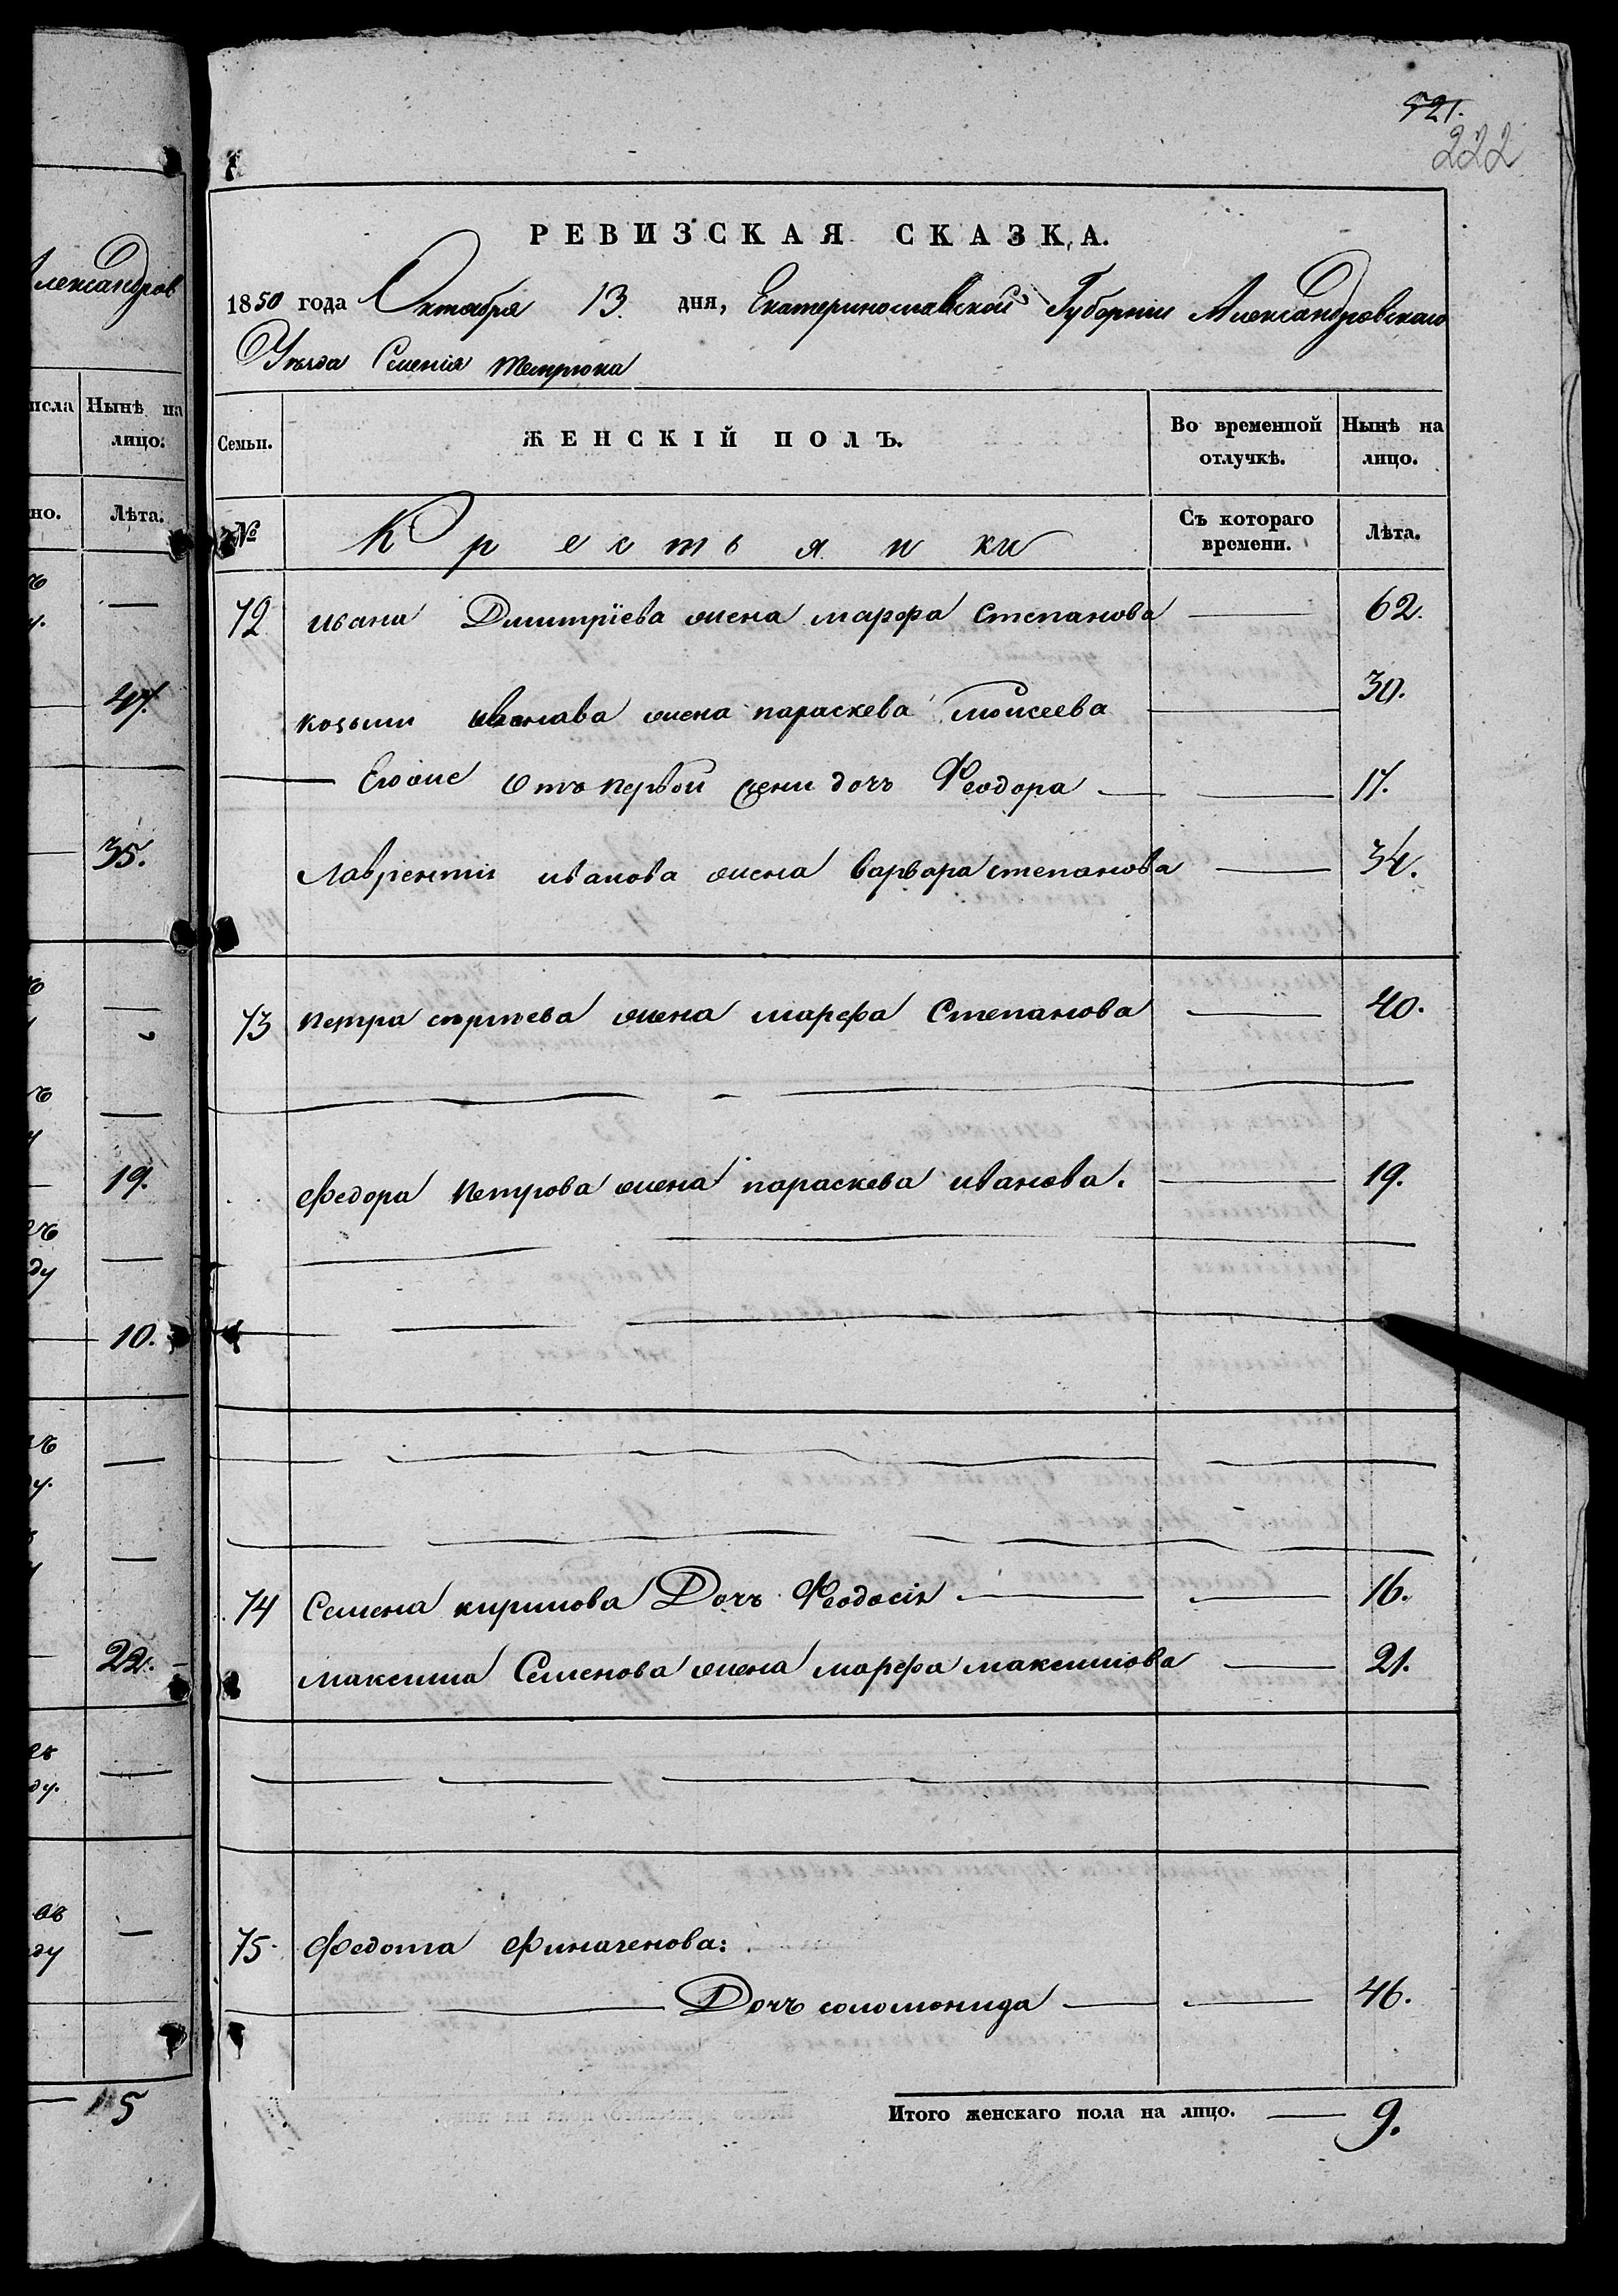 521.
222
РЕВИЗСКАЯ СКАЗКА.
1850 года Октября 13. дня, Екатеринославской Губернии Александровскаго
Уезда Селения Темрюка
Семьи.
ЖЕНСКІЙ ПОЛЪ.
Во временной отлучкѣ.
Нынѣ на лицо.
№
Крестьянки
Съ котораго времени.
Лѣта.
72 ивана Дмитріева жена марфа Степанова — 62.
козьми иванава жена параскева моисеева — 30.
— Егоже Отъ первой жени дочъ Феодора — 17.
Лаврентия иванова жена варвара степанова — 34.
73 петра сергѣева жена марфа Степанова — 40.
Федора петрова жена параскева иванова. — 19.
74 Семена кирилова Дочъ Феодосія — 16.
максима Семенова жена марфа максимова — 21.
75. Федота Финагенова:
— Дочъ соломонида — 46.
Итого женскаго пола на лицо. — 9.
Александров
исла
Нынѣ на
лицо.
но.
Лѣта.
47.
35.
19.
10.
22.
15